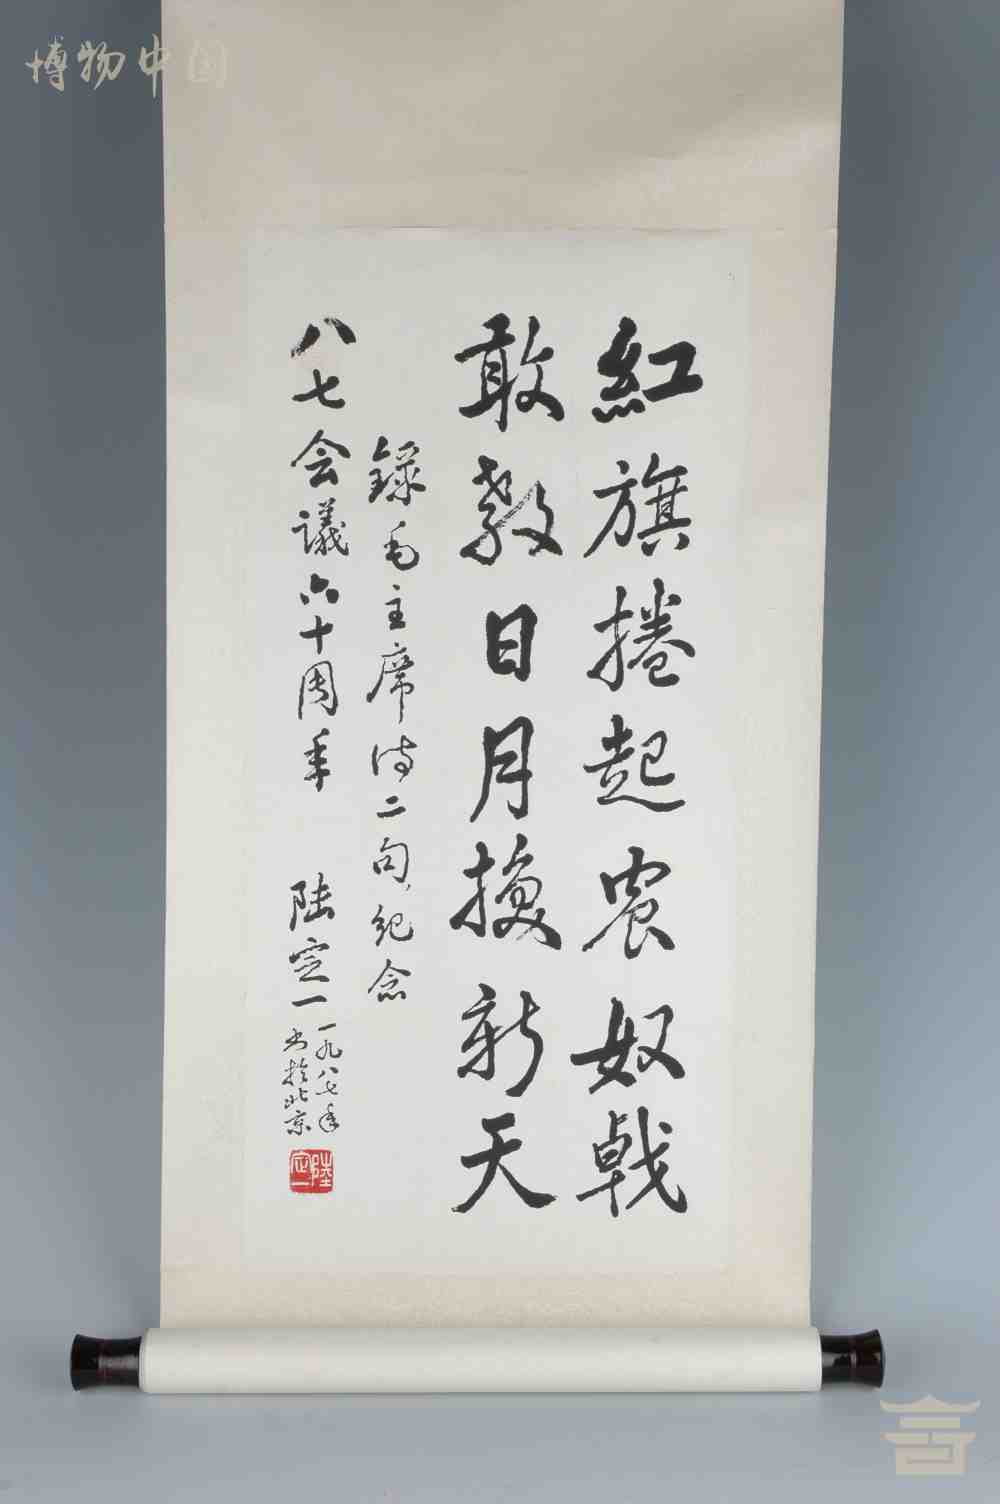 博物中国
紅旗捲起农奴戟
敢教日月換新天
録毛主席诗二句,纪念
八七会議六十周年
陆定一
一九八七年
书於北京
陸定一